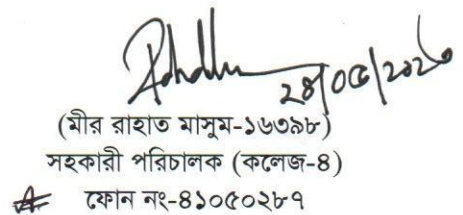 ২৪/০৫/২০২৩
(মীর রাহাত মাসুম-১৬৩৯৮)
সহকারী পরিচালক (কলেজ-৪)
ফোন নং-৪১০৫০২৮৭